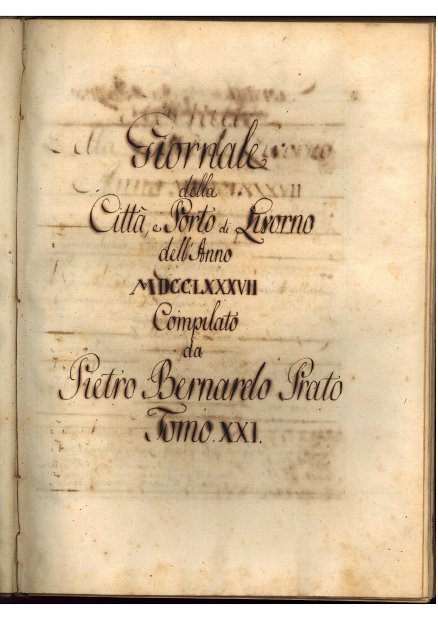 Giornale
della
Città, e Porto di Livorno
dell'Anno
MDCCLXXXVII
Compilato
da
Pietro Bernardo Prato
Tomo. XXI.